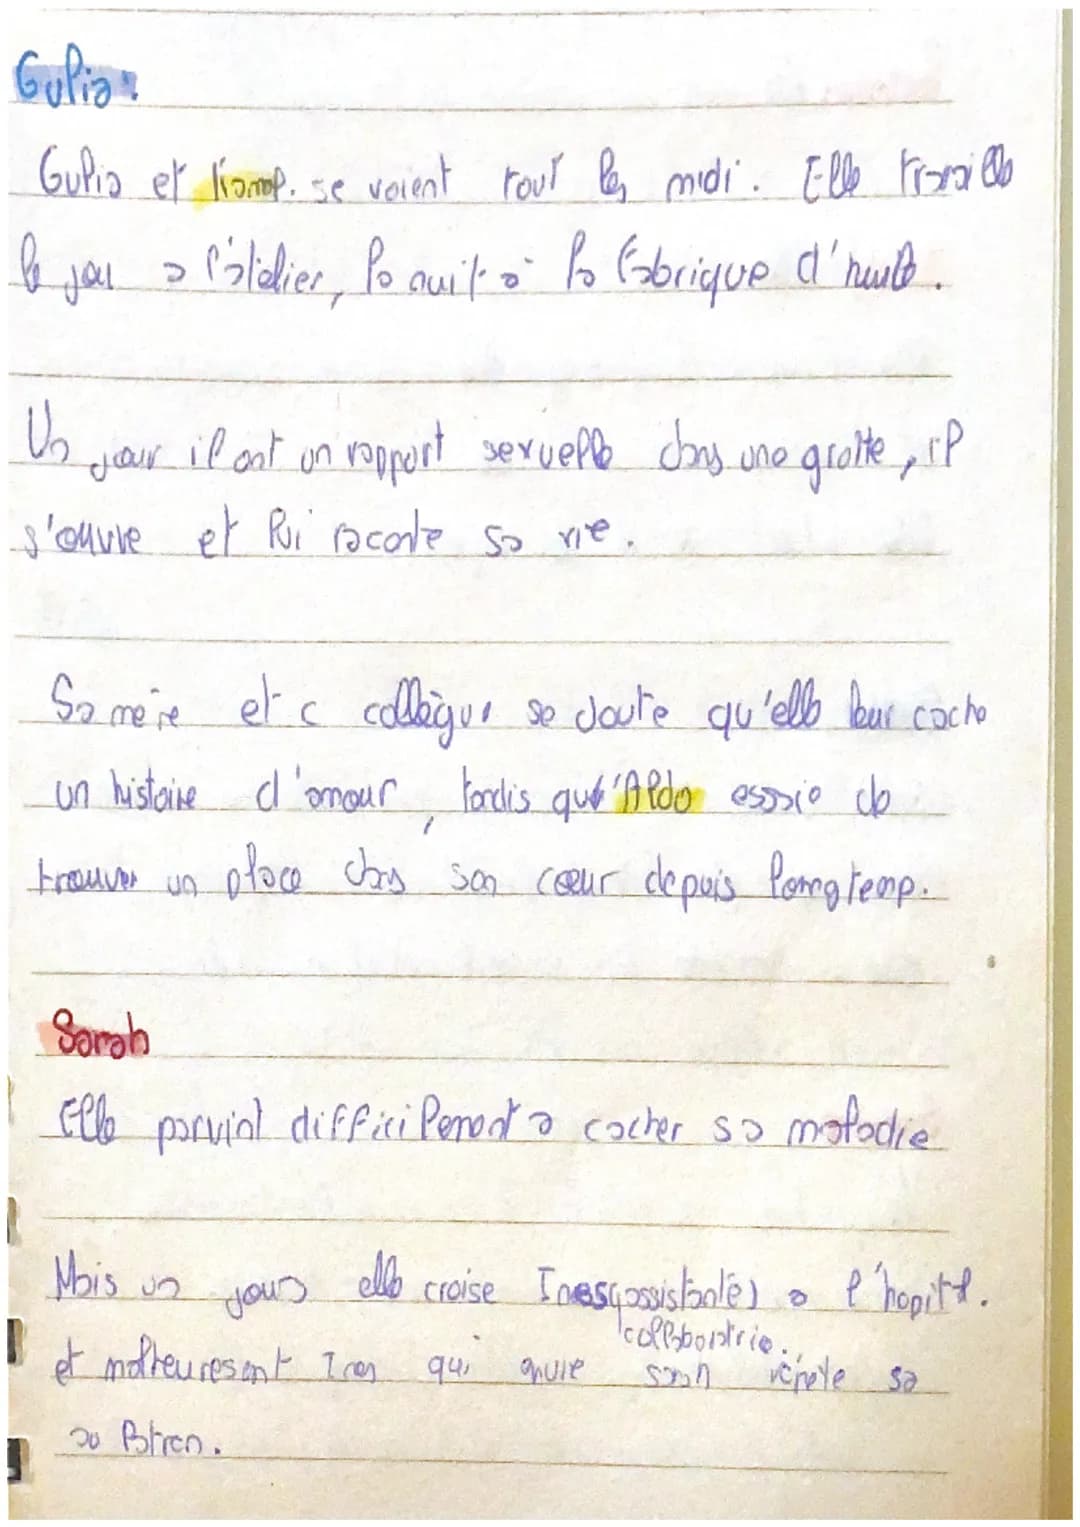 Gulia :
Gulia et Kamal. se voient tout les midi. Elle travaille
le jour a l'atelier, la nuit a la fabrique d'huile.
Un jour il ont un rapport sexuelle dans une grotte, il
s'ouvre et lui raconte sa vie.
Sa mère et c collègue se doute qu'elle leur cache
un histoire d'amour, tandis que'Aldo essaie de
trouver un place dans son cœur depuis longtemp.
Sarah
Elle parvint difficilement a cacher sa maladie
Mais un jours elle croise Ines(assistante) a l'hopital.
collaboratrice.
et malheuresent Ines qui envie sarah répète sa
au Patron.